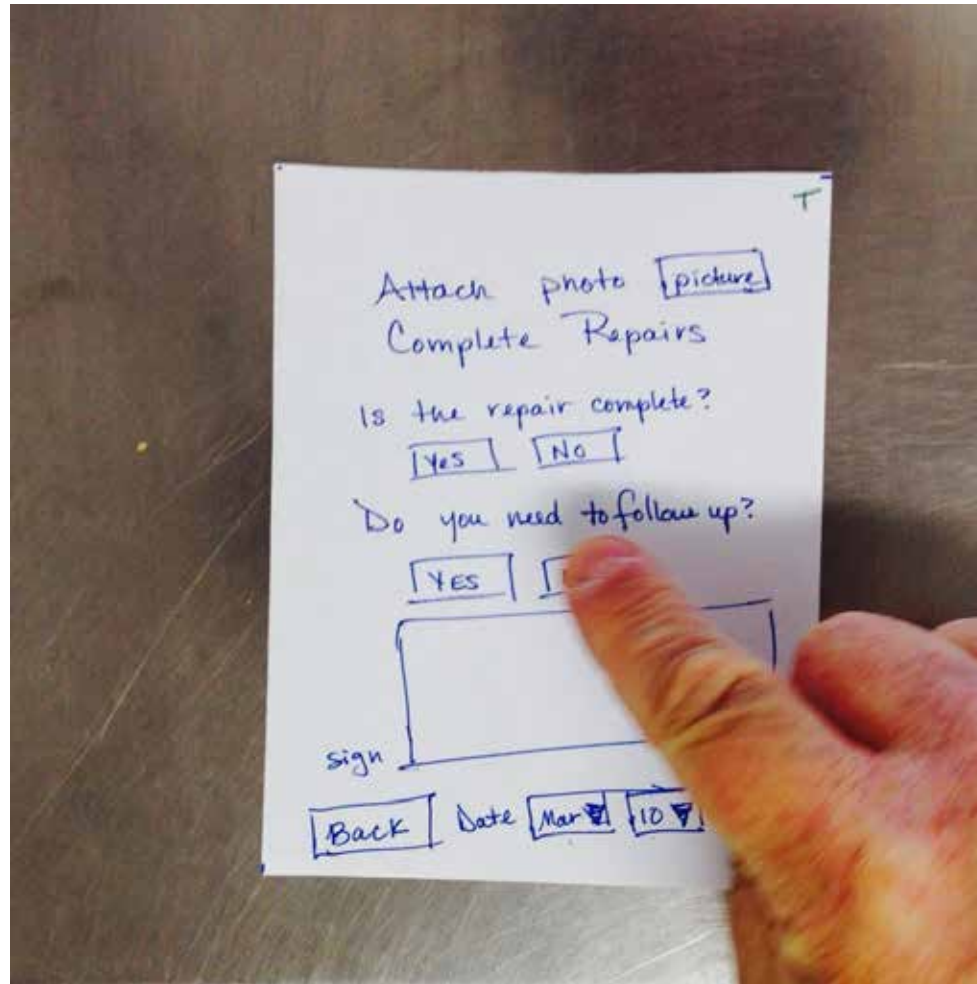 T
Attach photo picture
Complete Repairs
Is the repair complete?
Yes No
Do you need to follow up?
YES
sign
Back Date Mar 10